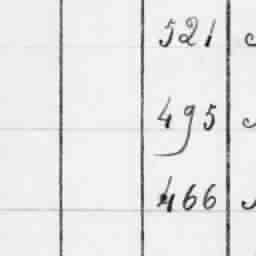 521
495
466